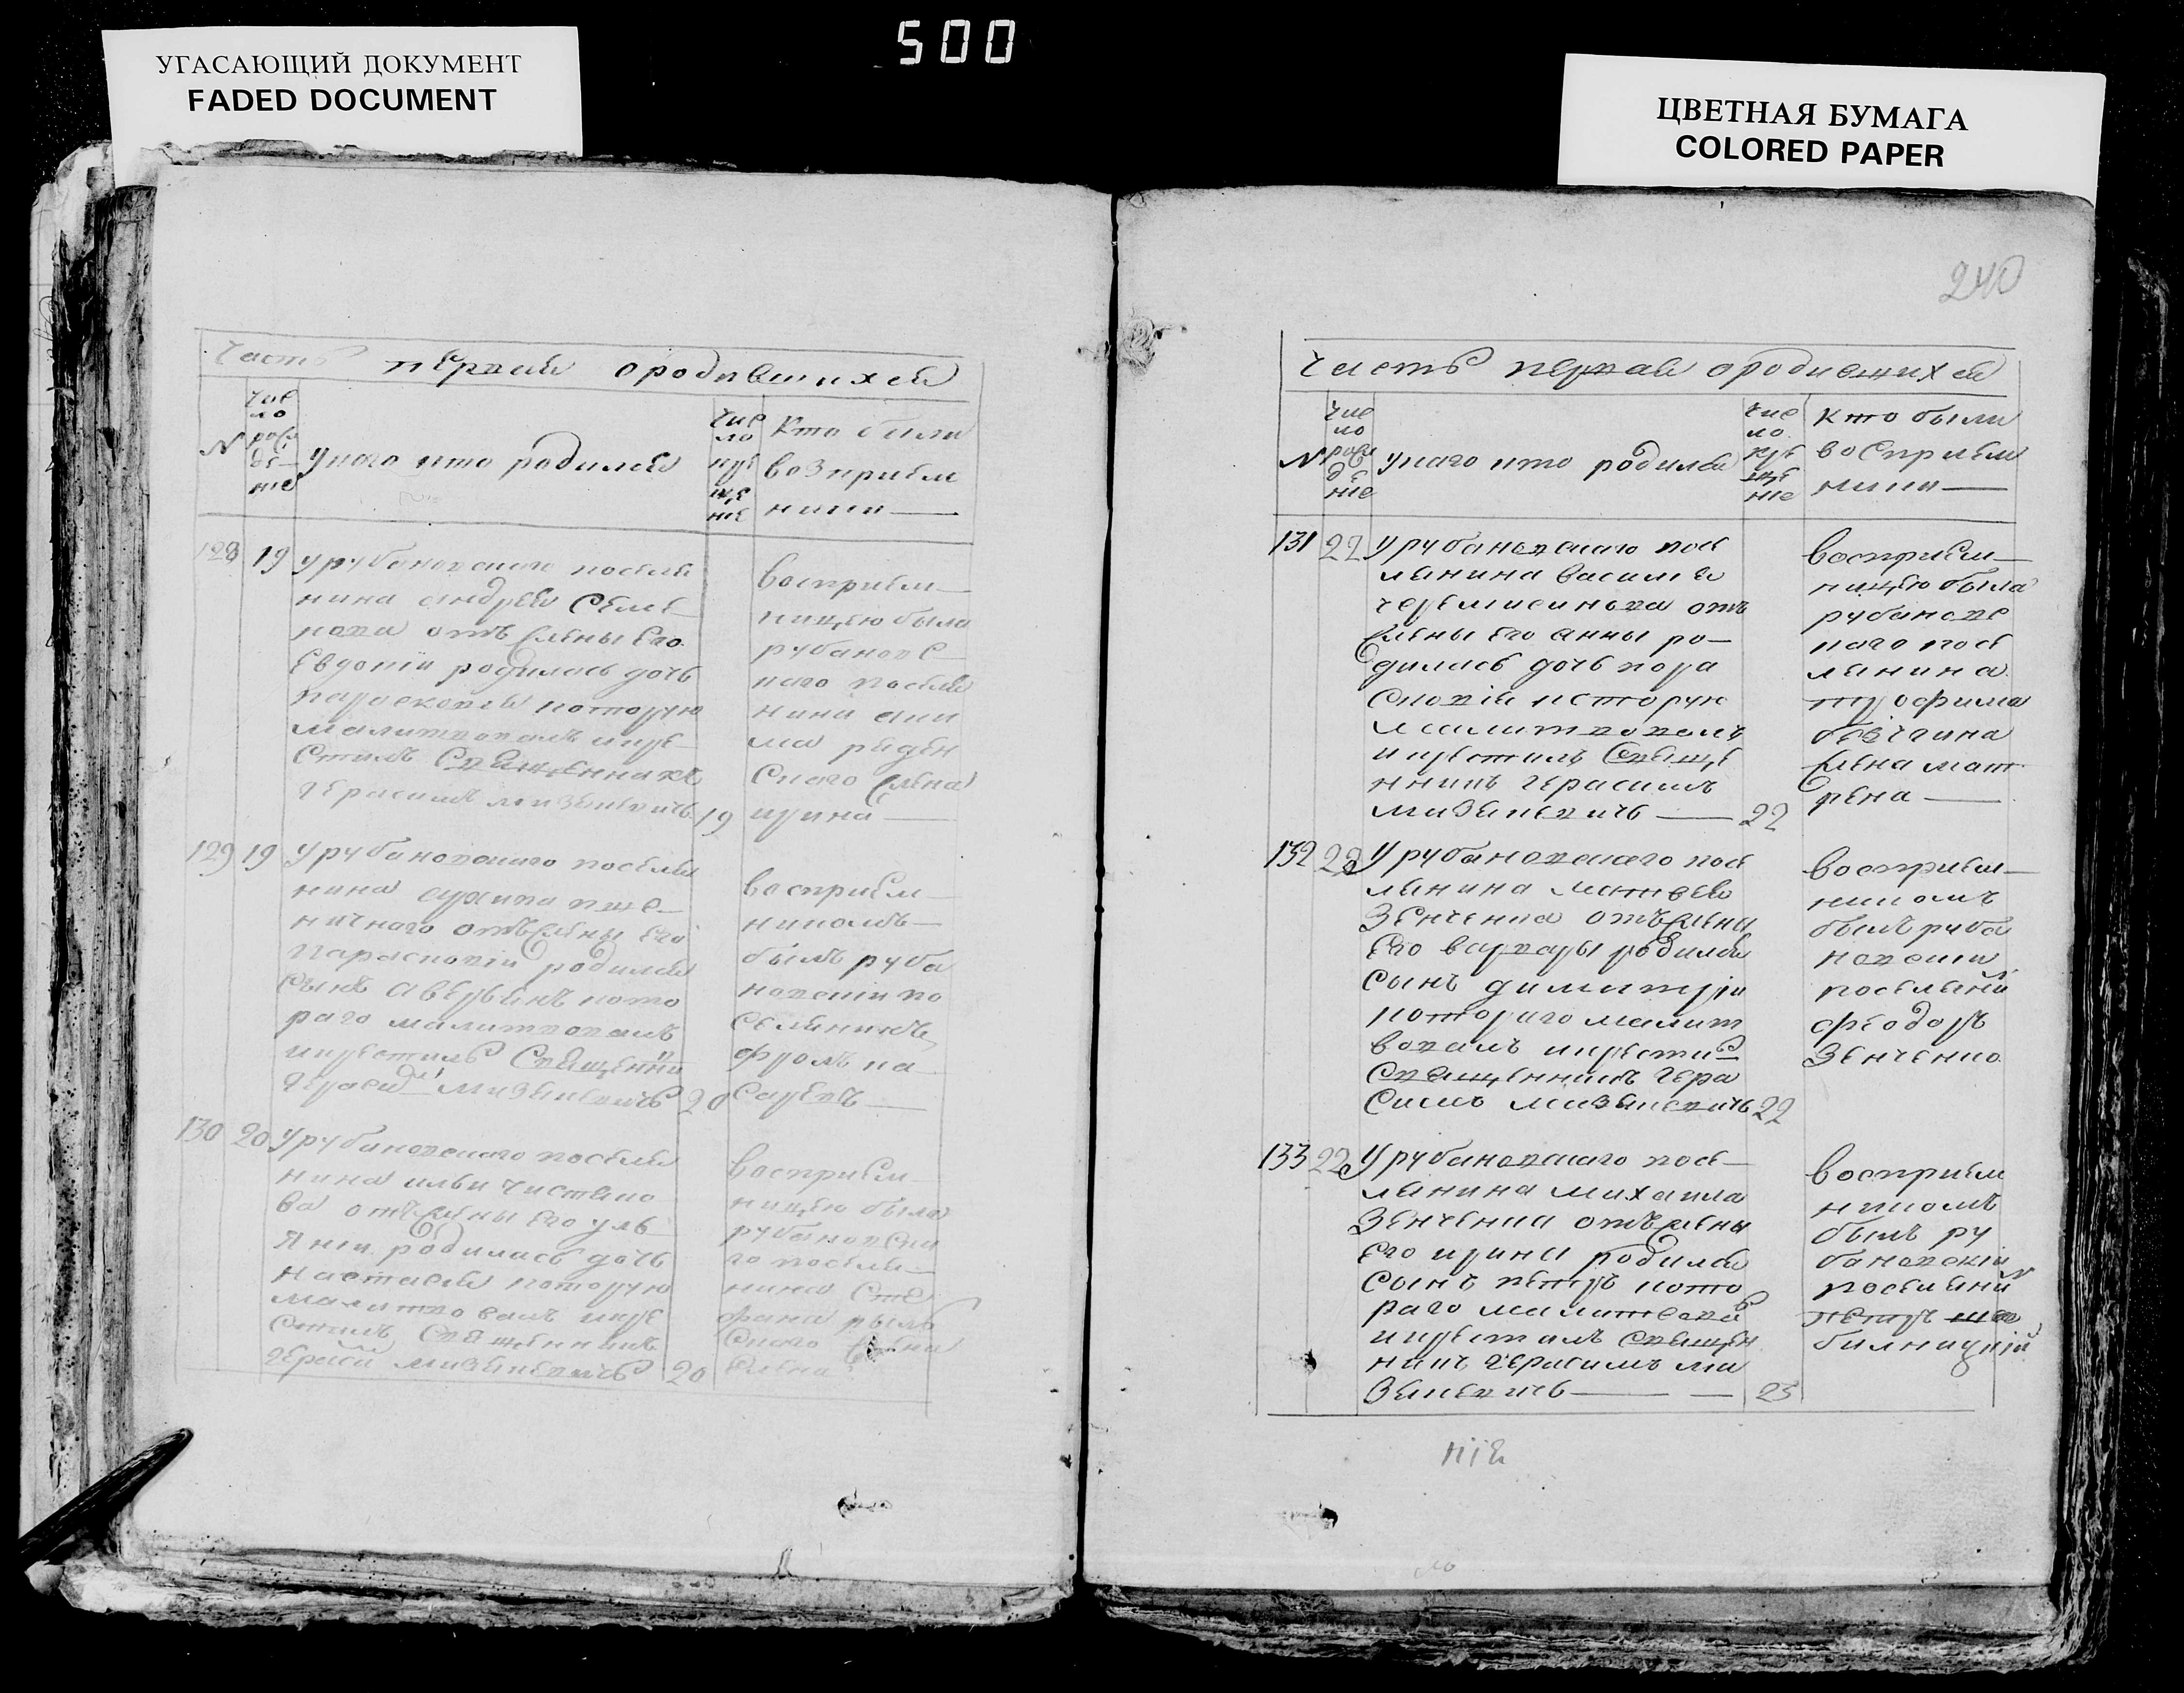 500
УГАСАЮЩИЙ ДОКУМЕНТ
FADED DOCUMENT
ЦВЕТНАЯ БУМАГА
COLORED PAPER
Часть первая ородившихся
N
Чис
ло
рож
де
ние
Укого кто родился
Чис
ло
кре
ще
ние
Кто были
возприем
ники
128 19 Урубановскаго поселя
нина андрея Семе
нова отъ жены Его
Евдокіи родилась дочь
параскевия которую
малитвовалъ икре
стилъ Священникъ
герасимъ мизвкевичъ 19
восприем
ницею была
рубановс
каго поселя
нина
Скаго жена
ирина
129 19 Урубановскаго поселя
нина пше
ничнаго отъ жены Его
Параскокіи родился
Сынъ Аверьянъ кото
раго малитвовалъ
икрестилъ Священни
герасим мизвкевичъ 20
восприем
никомъ
былъ руба
новскій по
селянинъ
фролъ ка
саревъ
130 20 Урубановскаго поселя
нина ильи Чистяко
ва отъ жены Его уль
яни родилась дочь
настасия которую
малитвовалъ икре
стилъ Священникъ
мизвкевичъ 20
восприем
ницею была
рубановска
го поселя
нина Сте
фана
Скаго жена
240
Часть первая ородившихся
N
Чис
ло
рож
де
ние
укаго кто родился
Чис
ло
кре
ще
ние
Кто были
восприем
ники
131 22 Урубановскаго посе
лянина василия
черемисинова отъ
жены Его анны ро
дилась дочь пара
сковія которую
малитвовалъ
икрестилъ Священ
нникъ герасимъ
мизвкевичъ 22
восприем
ницею была
рубановс
каго посе
лянина
трофима
жена мат
рена
132 22 Урубановскаго посе
лянина матвея
Зенченка отъ жены
Его варвары родился
Сынъ димитрій
котораго малит
вовалъ икрестил
Священникъ гера
Симъ мизвкевичъ 22
восприем
никомъ
былъ руба
новскій
поселянин
феодоръ
Зенченко
133 22 Урубановскаго посе
лянина михаила
Зенченка отъ жены
Его ирины родился
Сынъ петръ кото
раго малитвовал
икрестилъ Священ
никъ герасимъ ми
звкевичъ 23
восприем
никомъ
былъ ру
бановскій
поселянин
петръ